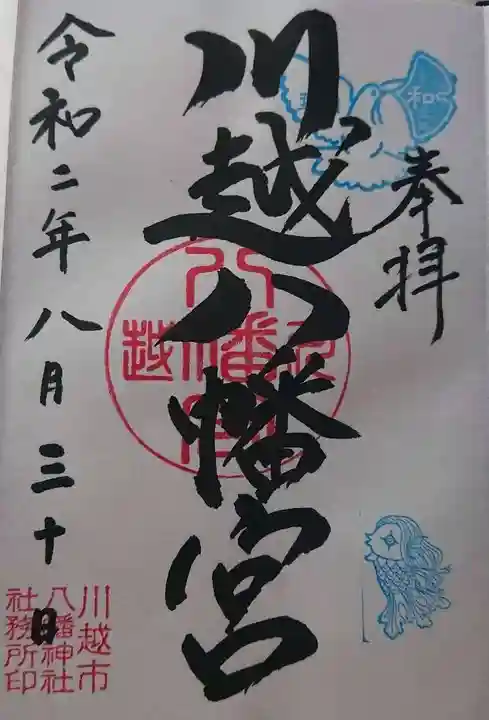 奉拝
川越八幡宮
令和二年八月三十日
川越市
八幡神社
社務所印
和